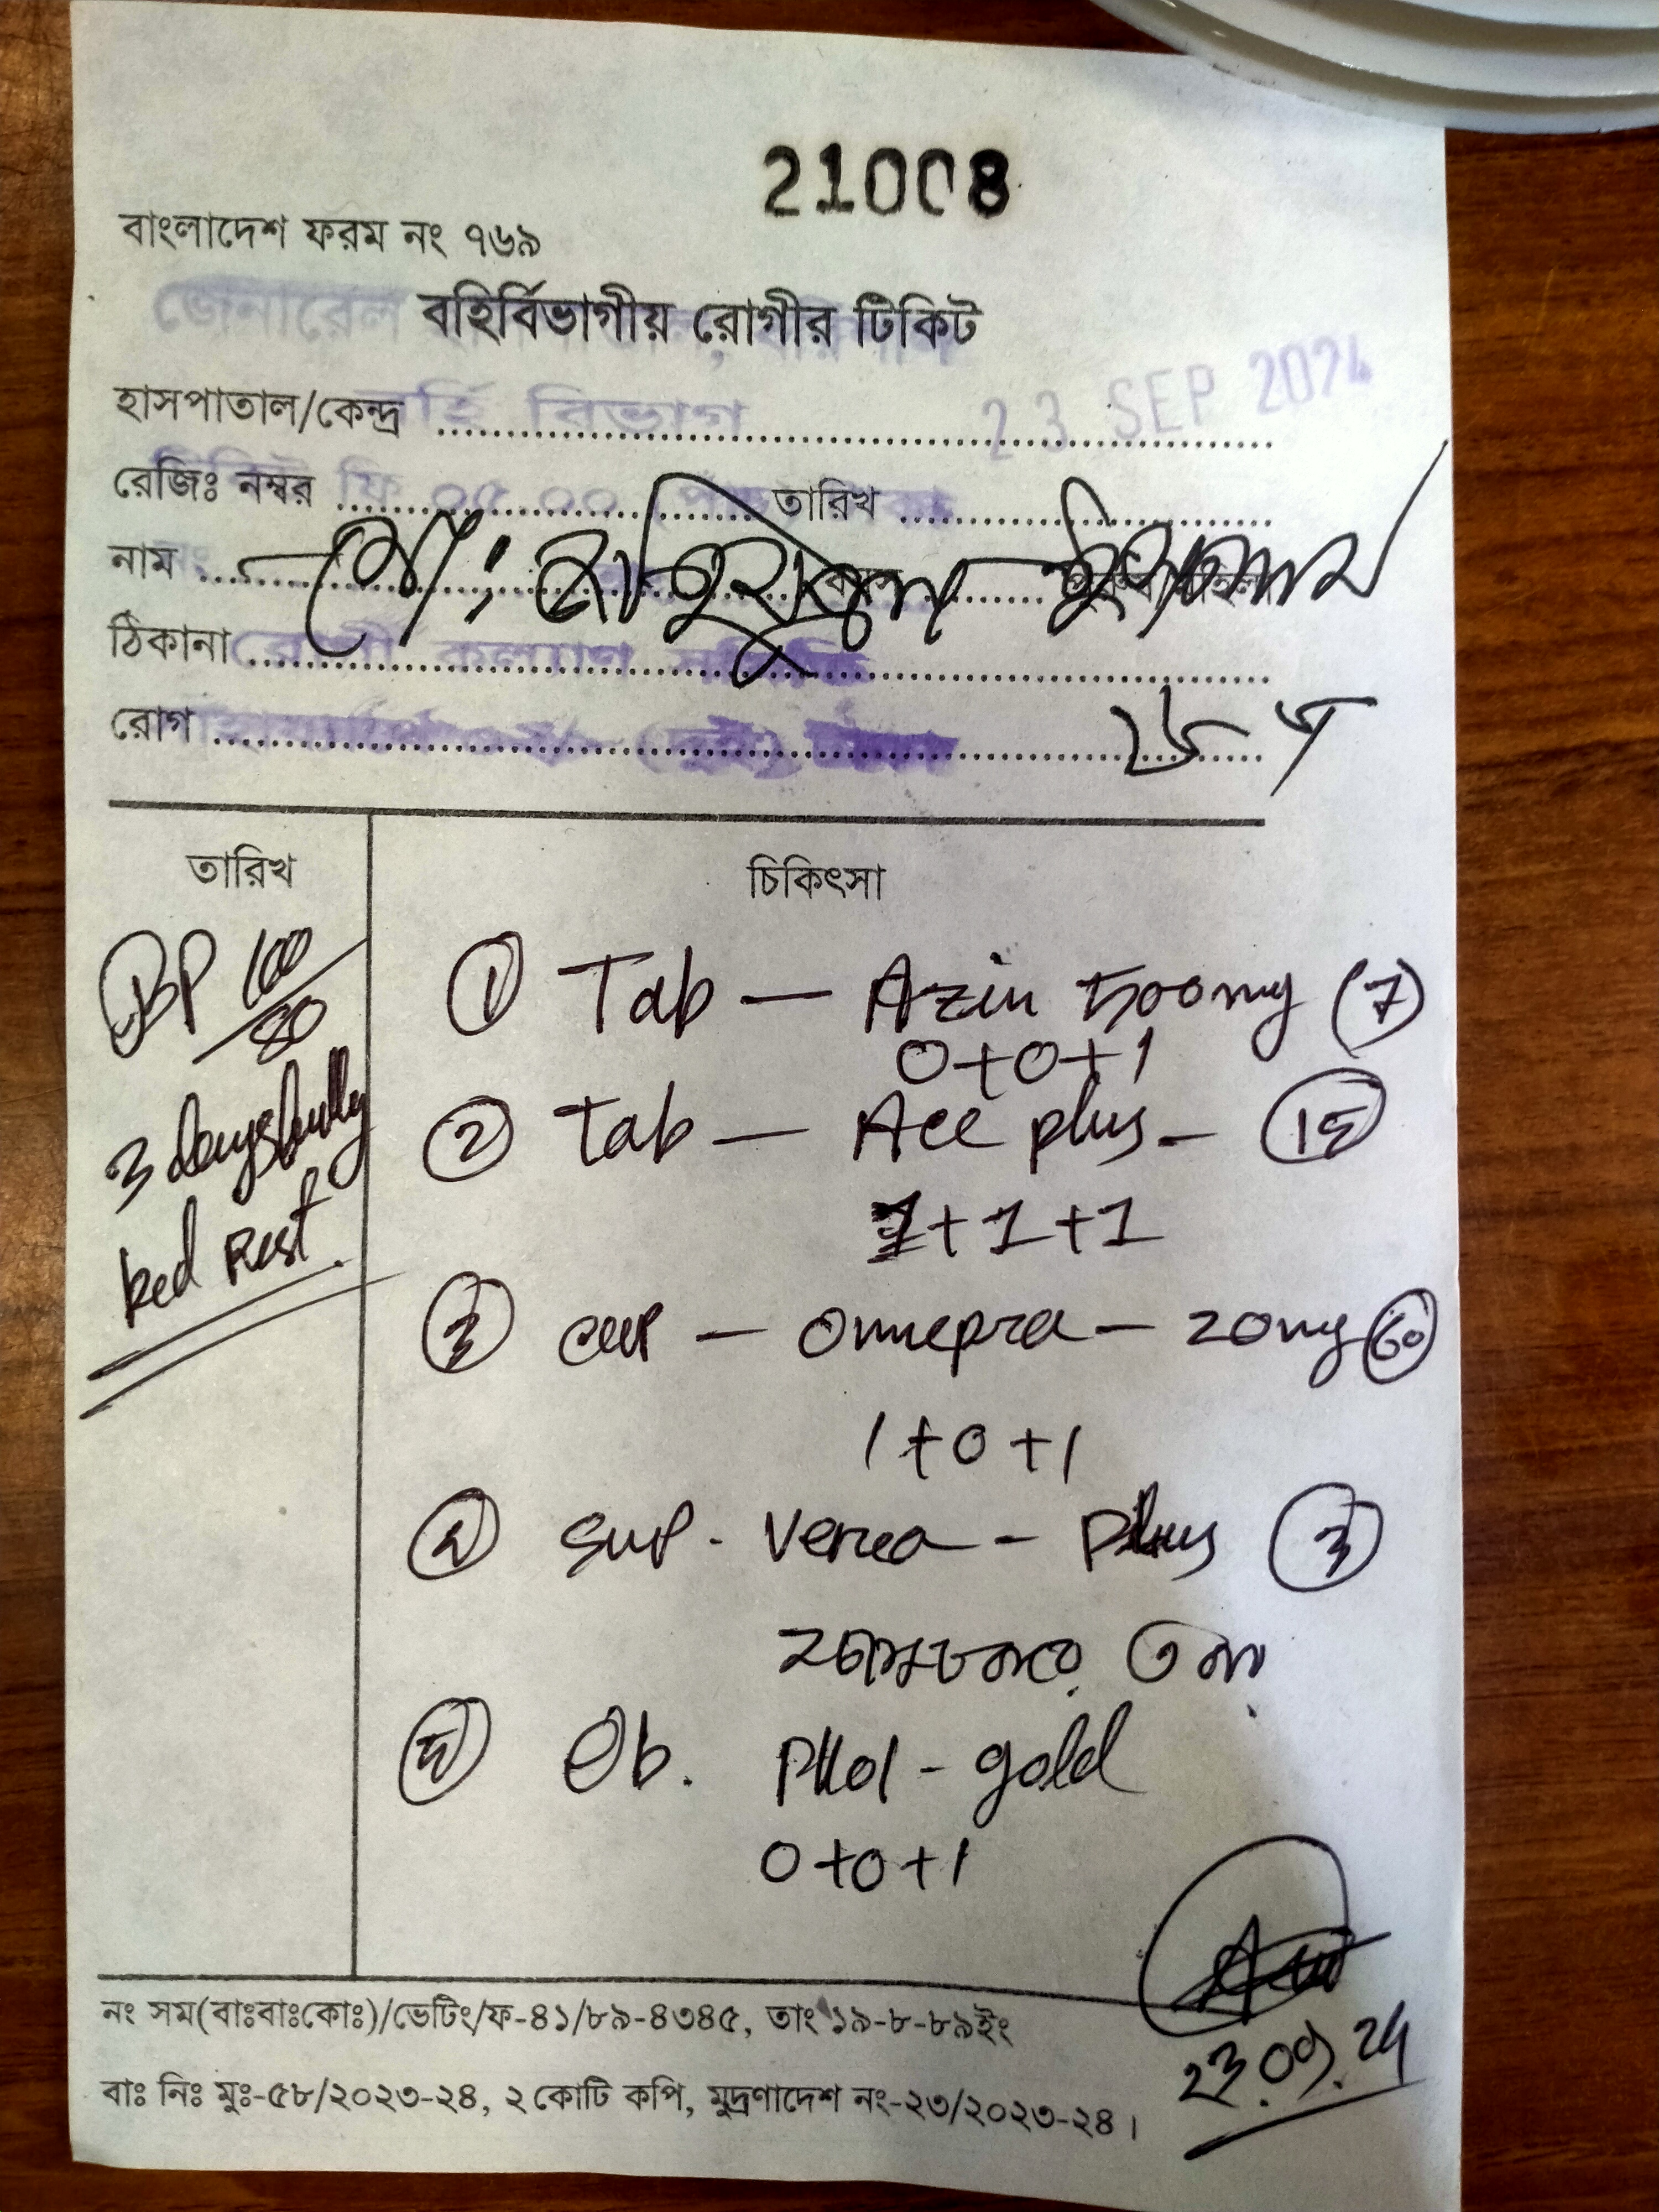 21008
বাংলাদেশ ফরম নং ৭৬৯
জেনারেল
বহির্বিভাগীয় রোগীর টিকিট
23 SEP 2024
হাসপাতাল/কেন্দ্র
বহি বিভাগ
রেজিঃ নম্বর তারিখ
নাম মোঃ ইসলাম
ঠিকানা
রোগী কল্যাণ
রোগ
তারিখ চিকিৎসা
BP 100/80
3 days fully
bed Rest.
① Tab — Azin 500mg (7)
0+0+1
② Tab — Ace plus - (15)
1+1+1
③ cap — Omepra — 20mg (60)
1+0+1
④ Syp. - Plus (3)
⑤ gold
0+0+1
23.09.24
নং সম(বাঃবাঃকোঃ)/ভেটিং/ফ-৪১/৮৯-৪৩৪৫, তাং ১৯-৮-৮৯ইং
বাঃ নিঃ মুঃ-৫৮/২০২৩-২৪, ২ কোটি কপি, মুদ্রণাদেশ নং-২৩/২০২৩-২৪।